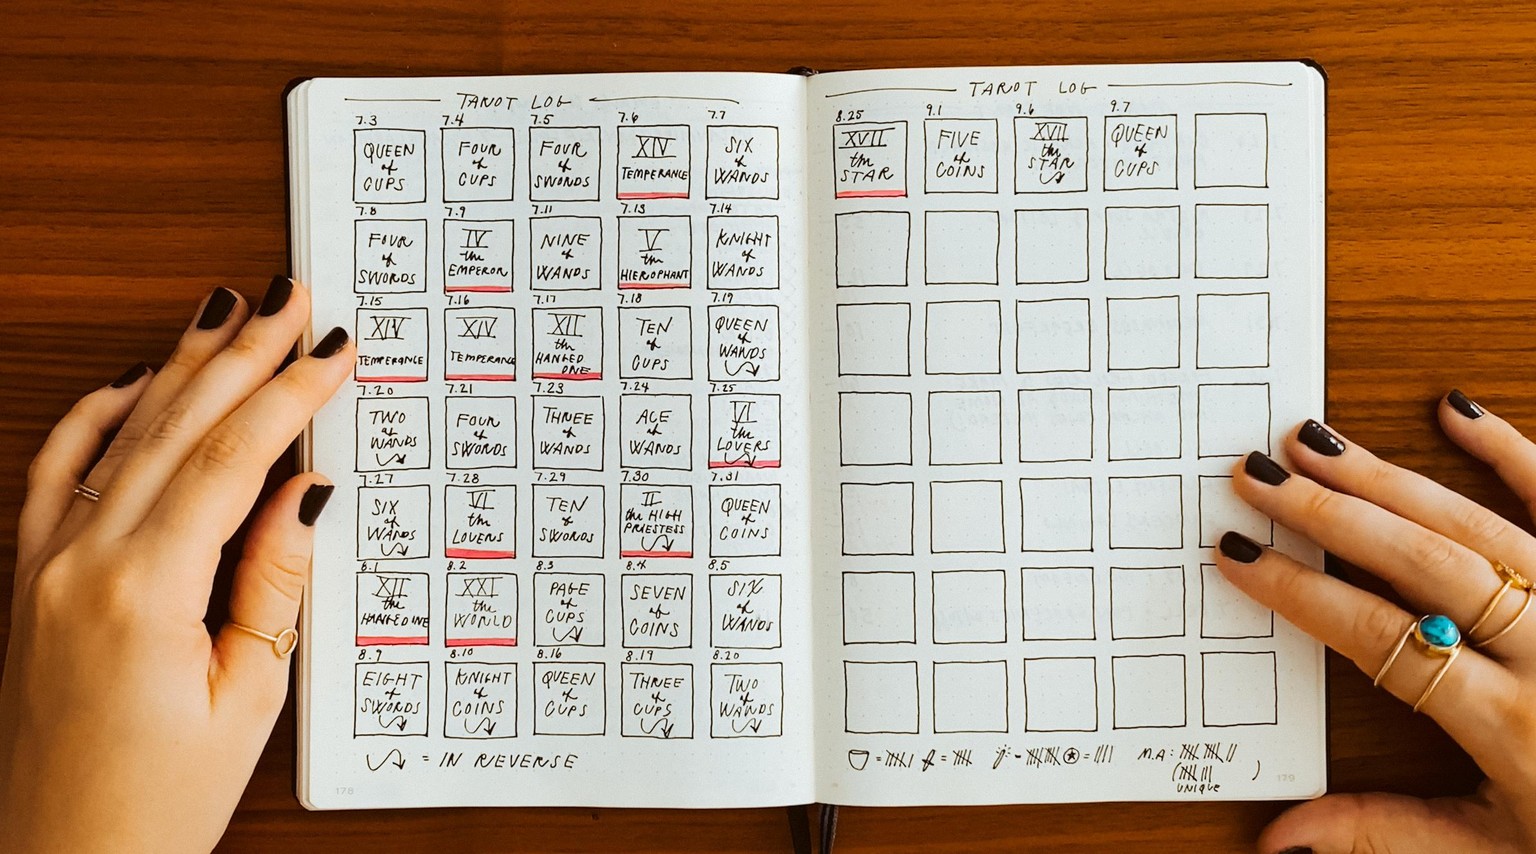 TAROT LOG
7.3 7.4 7.5 7.6 7.7
QUEEN of CUPS
FOUR of CUPS
FOUR of SWORDS
XIV TEMPERANCE
SIX of WANDS
7.8 7.9 7.11 7.13 7.14
FOUR of SWORDS
IV the EMPEROR
NINE of WANDS
V the HIEROPHANT
KNIGHT of WANDS
7.15 7.16 7.17 7.18 7.19
XIV TEMPERANCE
XIV TEMPERANCE
XII the HANGED ONE
TEN of CUPS
QUEEN of WANDS
7.20 7.21 7.23 7.24 7.25
TWO of WANDS
FOUR of SWORDS
THREE of WANDS
ACE of WANDS
VI the LOVERS
7.27 7.28 7.29 7.30 7.31
SIX of WANDS
VI the LOVERS
TEN of SWORDS
II the HIGH PRIESTESS
QUEEN of COINS
8.1 8.2 8.3 8.4 8.5
XII the HANGED ONE
XXI the WORLD
PAGE of CUPS
SEVEN of COINS
SIX of WANDS
8.9 8.10 8.16 8.19 8.20
EIGHT of SWORDS
KNIGHT of COINS
QUEEN of CUPS
THREE of CUPS
TWO of WANDS
= IN REVERSE
178
TAROT LOG
8.25 9.1 9.6 9.7
XVII the STAR
FIVE of COINS
XVII the STAR
QUEEN of CUPS
M.A:
( )
UNIQUE
179